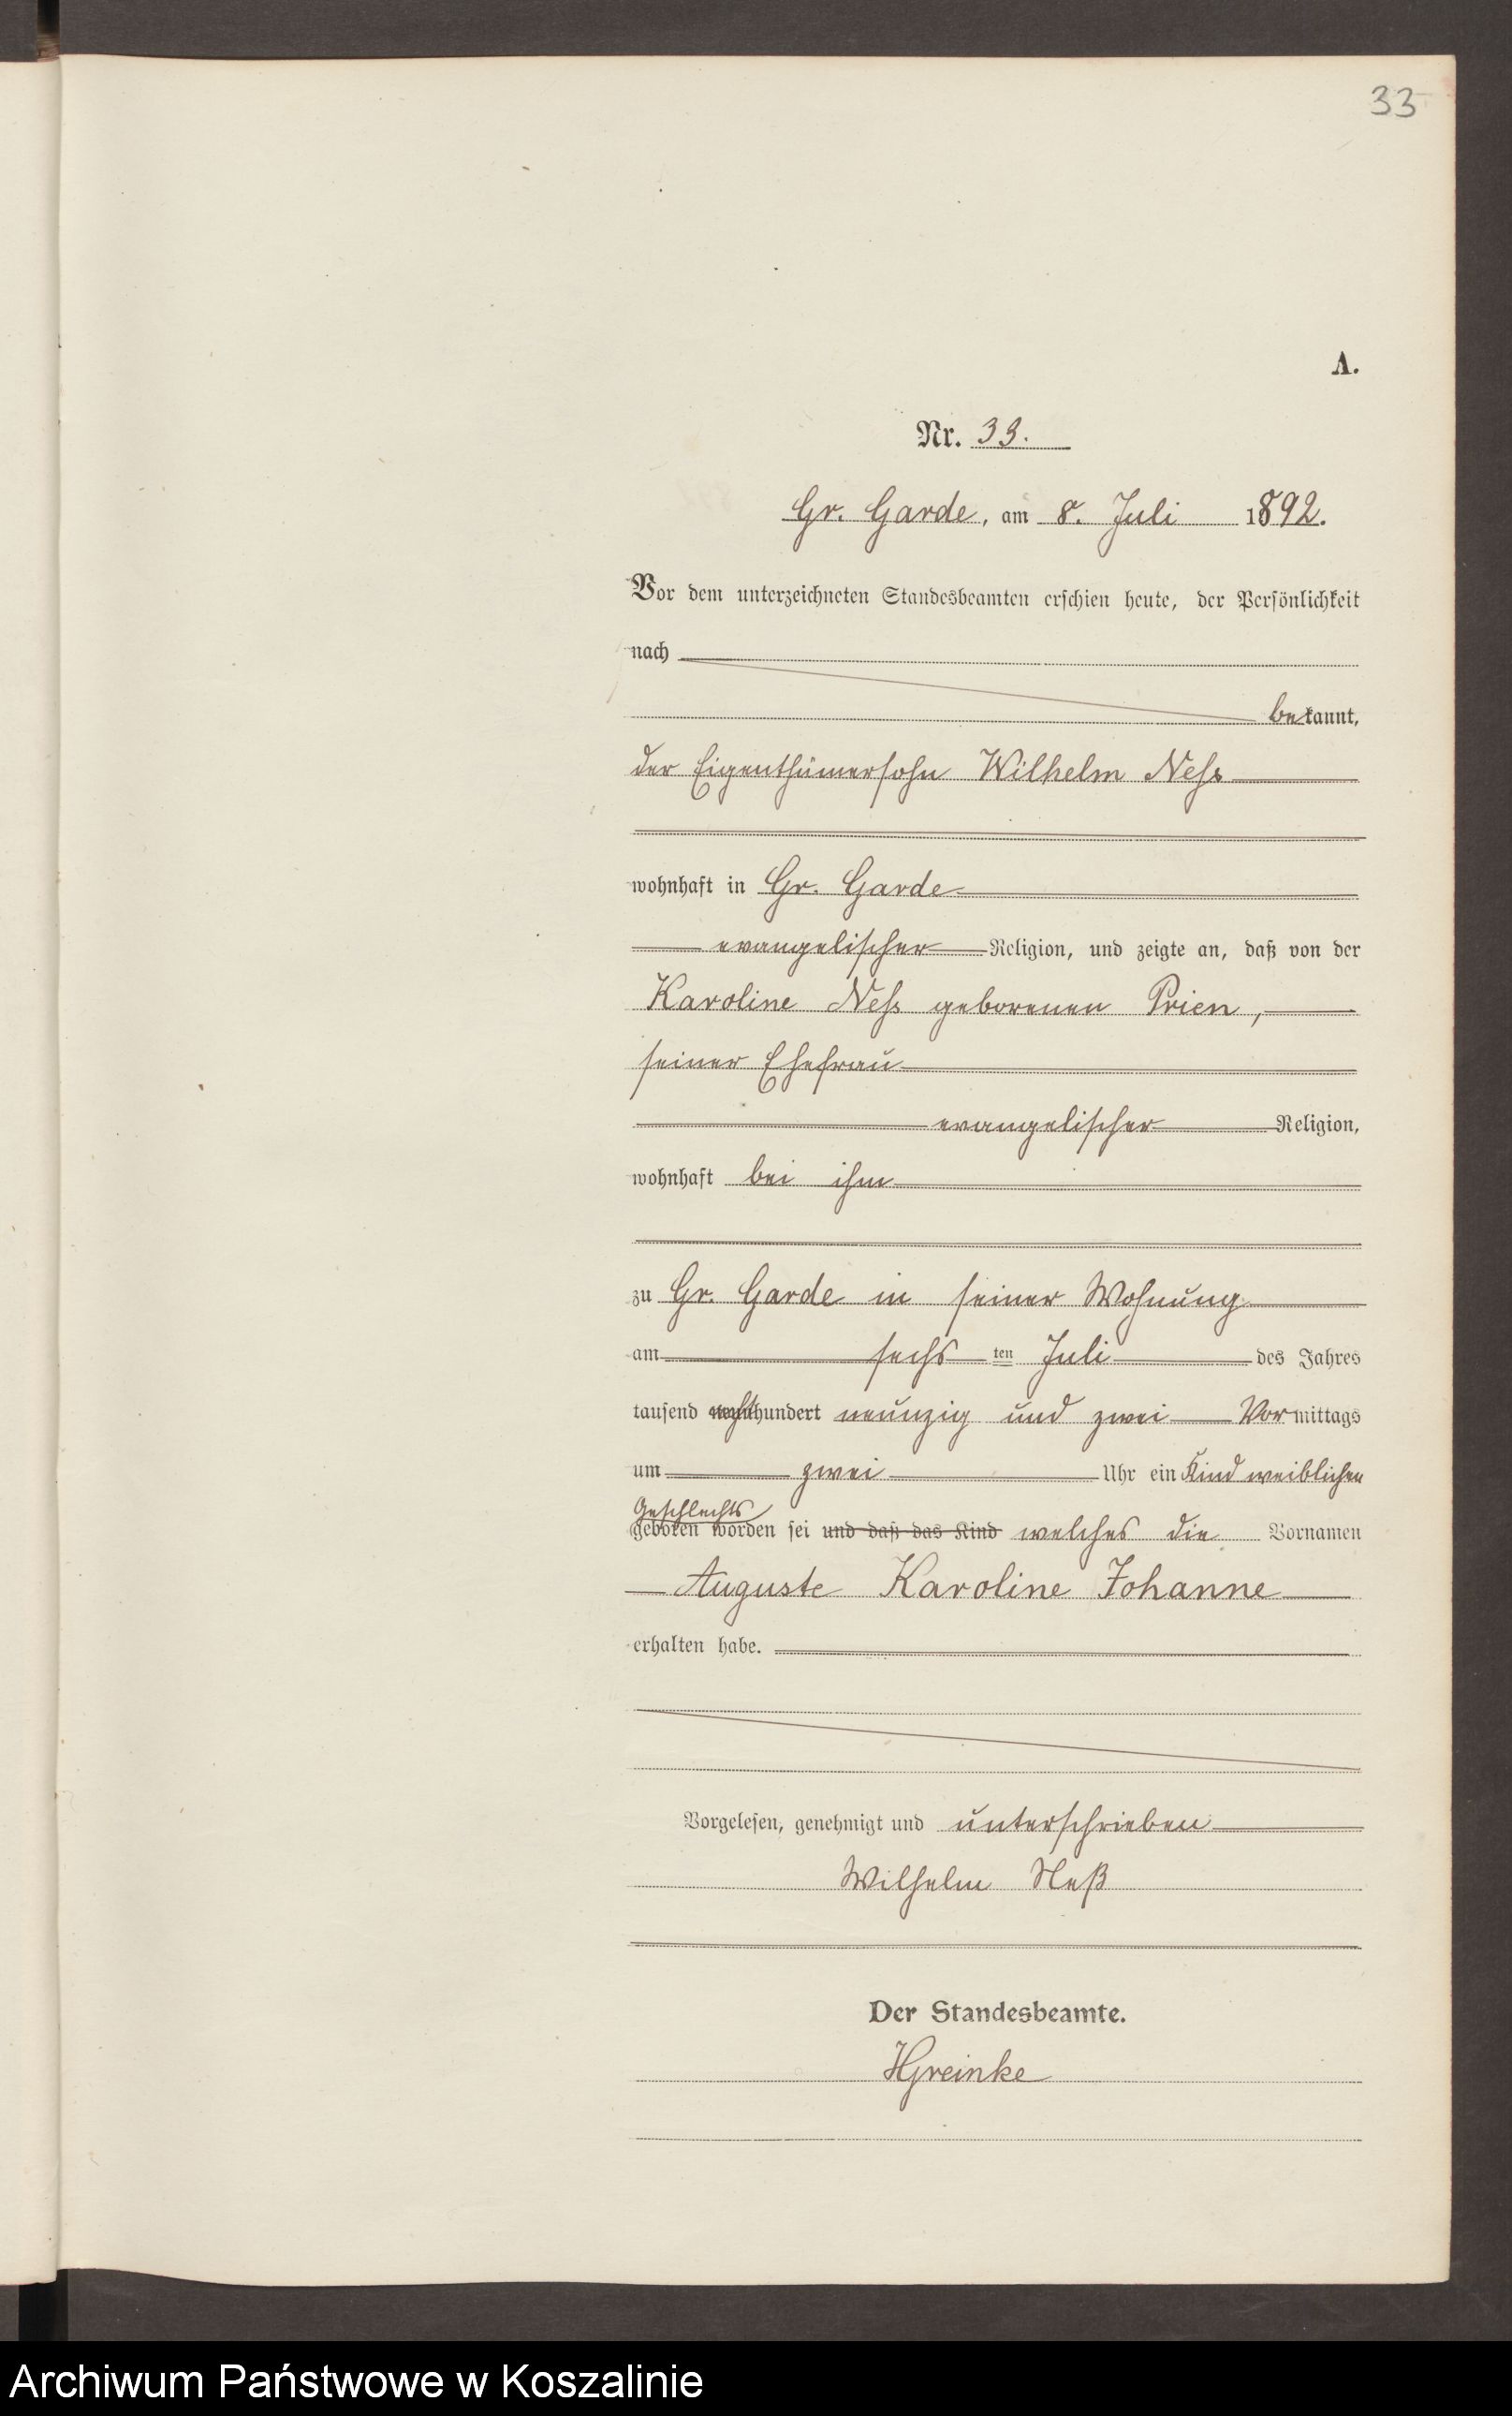 33
A.
Nr. 33.
Gr. Garde, am 8. Juli 1892.
Vor dem unterzeichneten Standesbeamten erschien heute, der Persönlichkeit
nach
bekannt,
der Eigenthümersohn Wilhelm Ness
wohnhaft in Gr. Garde
evangelischer Religion, und zeigte an, daß von der
Karoline Ness geborenen Prien,
seiner Ehefrau
evangelischer Religion,
wohnhaft bei ihm
zu Gr. Garde in seiner Wohnung
am sechs ten Juli des Jahres
tausend achthundert neunzig und zwei Vormittags
um zwei Uhr ein Kind weiblichen
Geschlechts
geboren worden sei und daß das Kind welches die Vornamen
Auguste Karoline Johanne
erhalten habe.
Vorgelesen, genehmigt und unterschrieben
Wilhelm Neß
Der Standesbeamte.
HGreinke
Archiwum Państwowe w Koszalinie